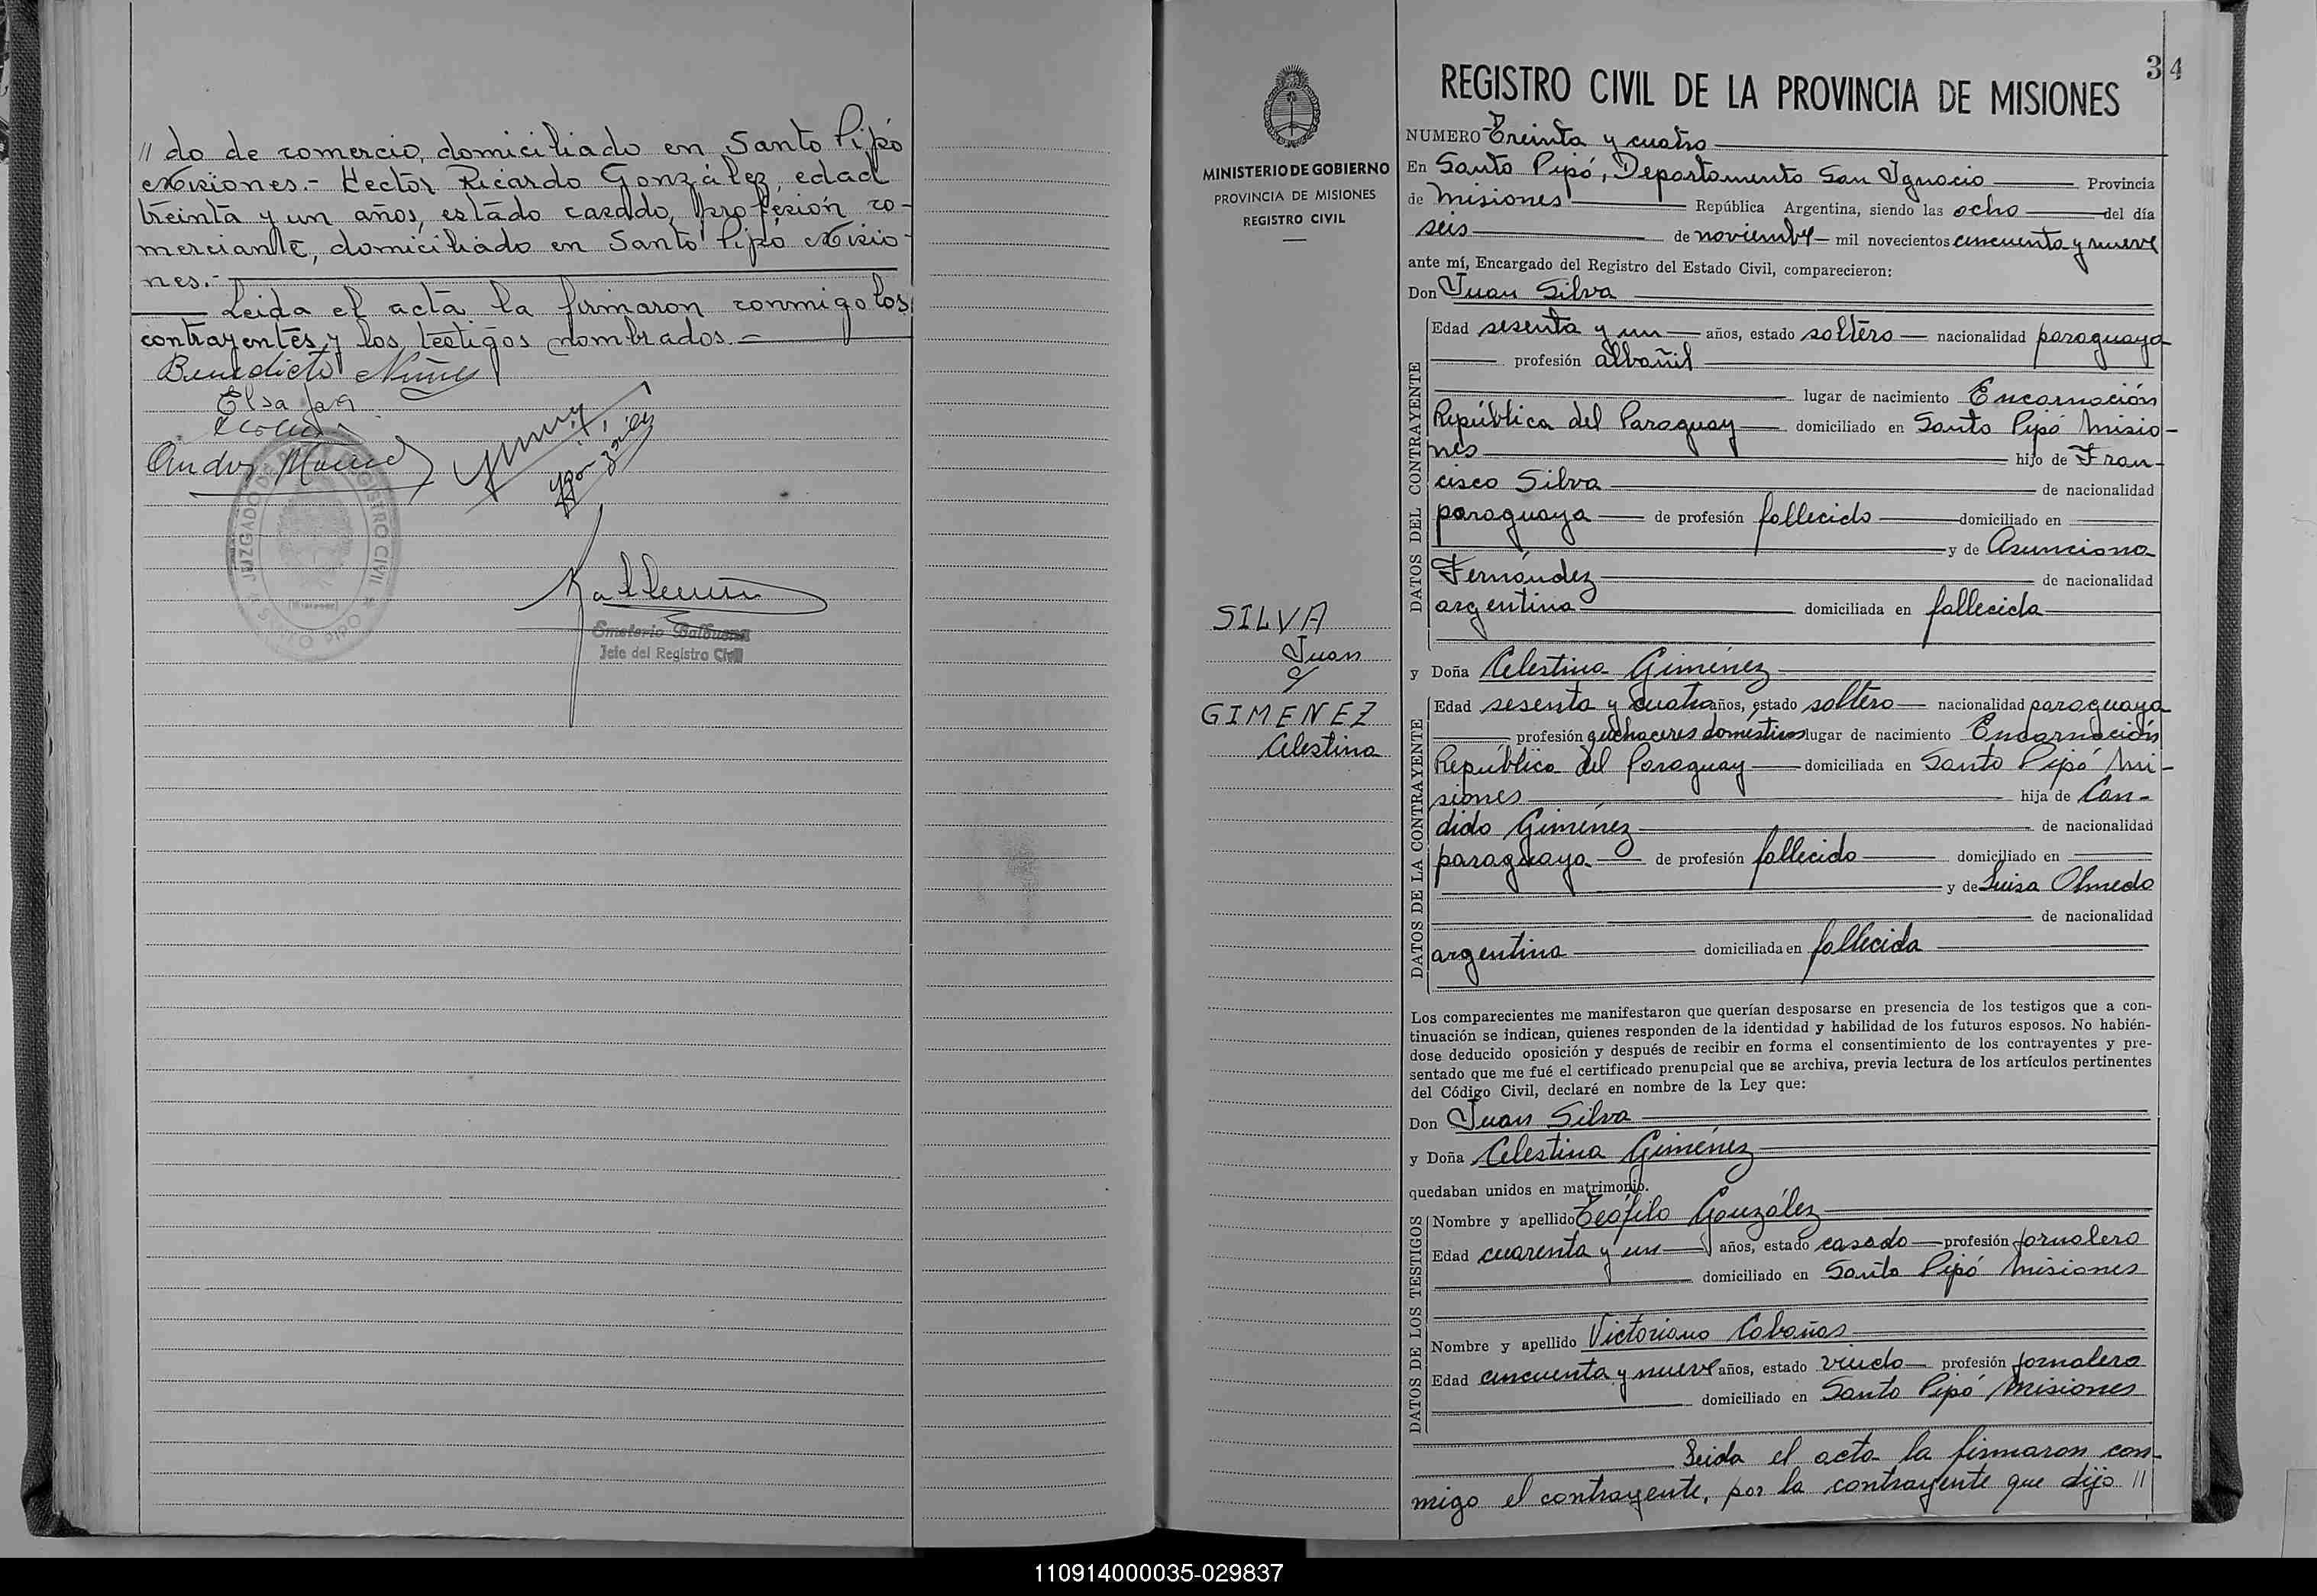 // do de comercio, domiciliado en Santo Pipó
Misiones.- Hector Ricardo González, edad
treinta y un años, estado casado, profesión co-
merciante, domiciliado en Santo Pipó Misio-
nes.-
Leida el acta la firmaron conmigo los
contrayentes y los testigos nombrados.-
Benedicto Nuñes
Elsa
JUZGADO DE PAZ Y REGISTRO CIVIL
SANTO PIPO
(Misiones)
Emeterio Balbuena
Jefe del Registro Civil
MINISTERIO DE GOBIERNO
PROVINCIA DE MISIONES
REGISTRO CIVIL
SILVA
Juan
c/
GIMENEZ
Celestina
34
REGISTRO CIVIL DE LA PROVINCIA DE MISIONES
NUMERO Treinta y cuatro
En Santo Pipó, Departamento San Ignacio Provincia
de Misiones República Argentina, siendo las ocho del día
seis de noviembre mil novecientos cincuenta y nueve
ante mí, Encargado del Registro del Estado Civil, comparecieron:
Don Juan Silva
DATOS DEL CONTRAYENTE
Edad sesenta y un años, estado soltero nacionalidad paraguaya
profesión albañil
lugar de nacimiento Encarnación
República del Paraguay domiciliado en Santo Pipó Misio-
nes hijo de Fran-
cisco Silva de nacionalidad
paraguaya de profesión fallecido domiciliado en
y de Asunciona
Fernández de nacionalidad
argentina domiciliada en fallecida
y Doña Celestina Giménez
DATOS DE LA CONTRAYENTE
Edad sesenta y cuatro años, estado soltera nacionalidad paraguaya
profesión quehaceres domésticos lugar de nacimiento Encarnación
República del Paraguay domiciliada en Santo Pipó Mi-
siones hija de Can-
dido Giménez de nacionalidad
paraguaya de profesión fallecido domiciliado en
y de Luisa Olmedo
de nacionalidad
argentina domiciliada en fallecida
Los comparecientes me manifestaron que querían desposarse en presencia de los testigos que a con-
tinuación se indican, quienes responden de la identidad y habilidad de los futuros esposos. No habién-
dose deducido oposición y después de recibir en forma el consentimiento de los contrayentes y pre-
sentado que me fué el certificado prenupcial que se archiva, previa lectura de los artículos pertinentes
del Código Civil, declaré en nombre de la Ley que:
Don Juan Silva
y Doña Celestina Giménez
quedaban unidos en matrimonio.
DATOS DE LOS TESTIGOS
Nombre y apellido Teófilo González
Edad cuarenta y un años, estado casado profesión jornalero
domiciliado en Santo Pipó Misiones
Nombre y apellido Victoriano Cabañas
Edad cincuenta y nueve años, estado viudo profesión jornalero
domiciliado en Santo Pipó Misiones
Leida el acta la firmaron con-
migo el contrayente, por la contrayente que dijo //
110914000035-029837